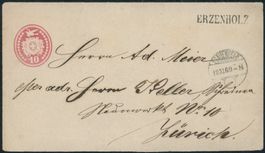 ERZENHOLZ
10
Herrn Ad. Meier
per adr. Herrn Keller
Neumarkt No 10
Zürich